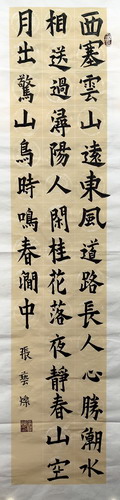 西塞雲山遠東風道路長人心勝潮水
相送過潯陽人閑桂花落夜靜春山空
月出驚山鳥時鳴春澗中
張